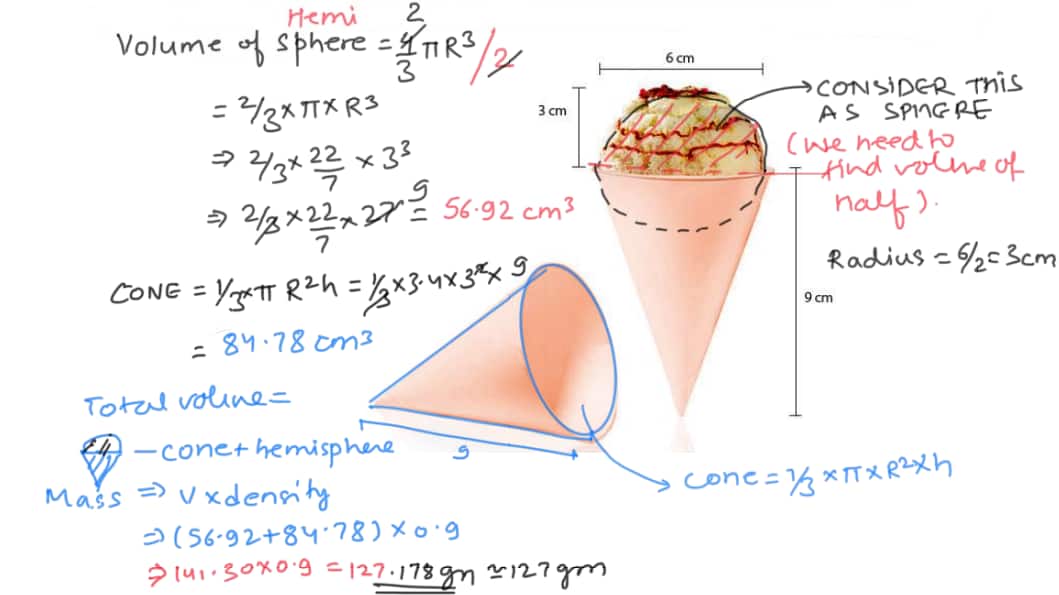 Hemi
Volume of sphere = 4/3 πR³/2
2
= 2/3 × π × R³
⇒ 2/3 × 22/7 × 3³
⇒ 2/3 × 22/7 × 27 9 = 56.92 cm³
CONE = 1/3 × π R²h = 1/3 × 3.4 × 3² × 9
= 84.78 cm³
Total volune =
– cone + hemisphere
Mass ⇒ V x density
⇒ (56.92 + 84.78) × 0.9
⇒ 141.30 × 0.9 = 127.178 gn ≃ 127 gm
6 cm
3 cm
→ CONSIDER THIS
AS SPHERE
(we need to
find volune of
half).
Radius = 6/2 = 3cm
9 cm
9
→ cone = 1/3 × π × R² × h